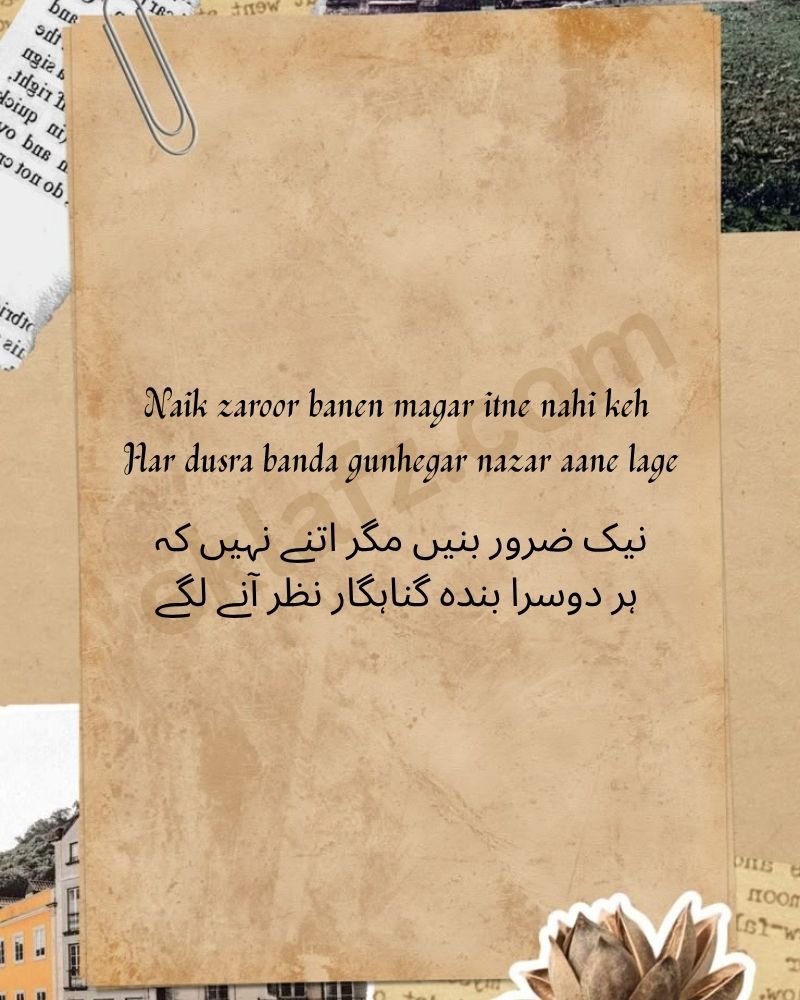 Naik zaroor banen magar itne nahi keh
Har dusra banda gunhegar nazar aane lage
نیک ضرور بنیں مگر اتنے نہیں کہ
ہر دوسرا بندہ گناہگار نظر آنے لگے